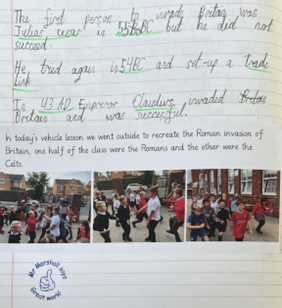 The first person to invade Britain was
Julius cesar in 55BC but he did not
succeed.
He tried again in 54BC and set up a trade
link
In 43 AD Emperor Claudius invaded Britain
Britain and was successful.
In today's vehicle lesson we went outside to recreate the Roman invasion of
Britain, one half of the class were the Romans and the other were the
Celts.
Mr Marshall says
Great work!